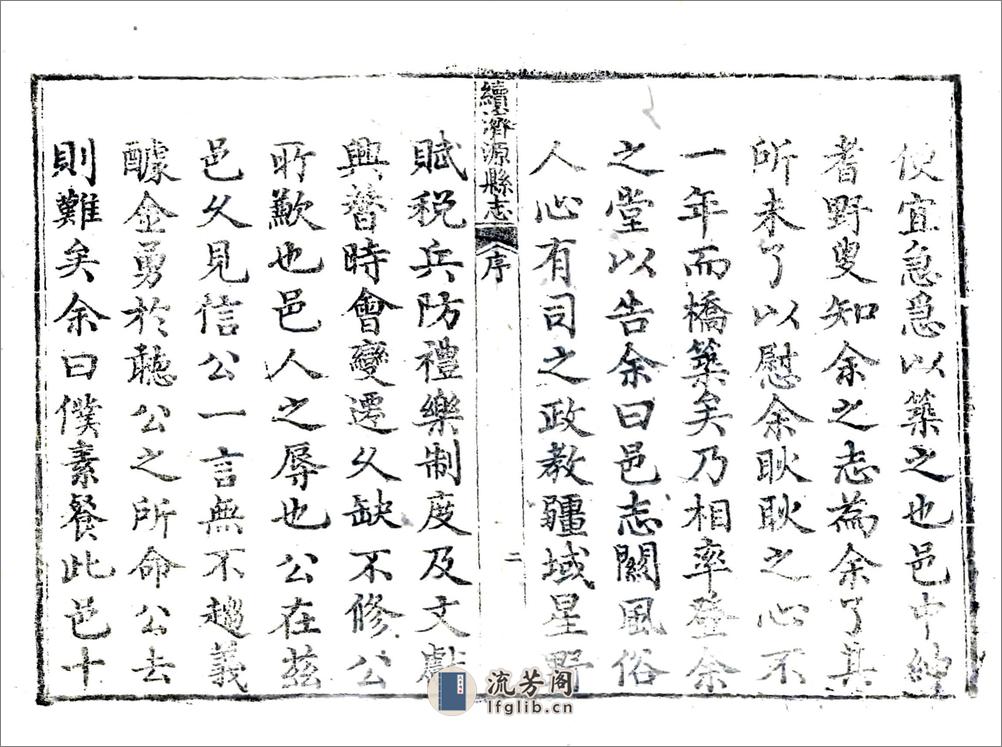 便宜急爲以築之也邑中紳
耆野叟知余之志為余了其
所未了以慰余耿耿之心不
一年而橋築矣乃相率登余
之堂以告余曰邑志關風俗
人心有司之政教疆域星野
續濟源縣志 序 二
賦税兵防禮樂制度及文獻
興替時會變遷久缺不修公
所歉也邑人之辱也公在茲
邑久見信公一言無不趨義
醵金勇於聽公之所命公去
則難矣余曰僕素餐此邑十
流芳阁
lfglib.cn